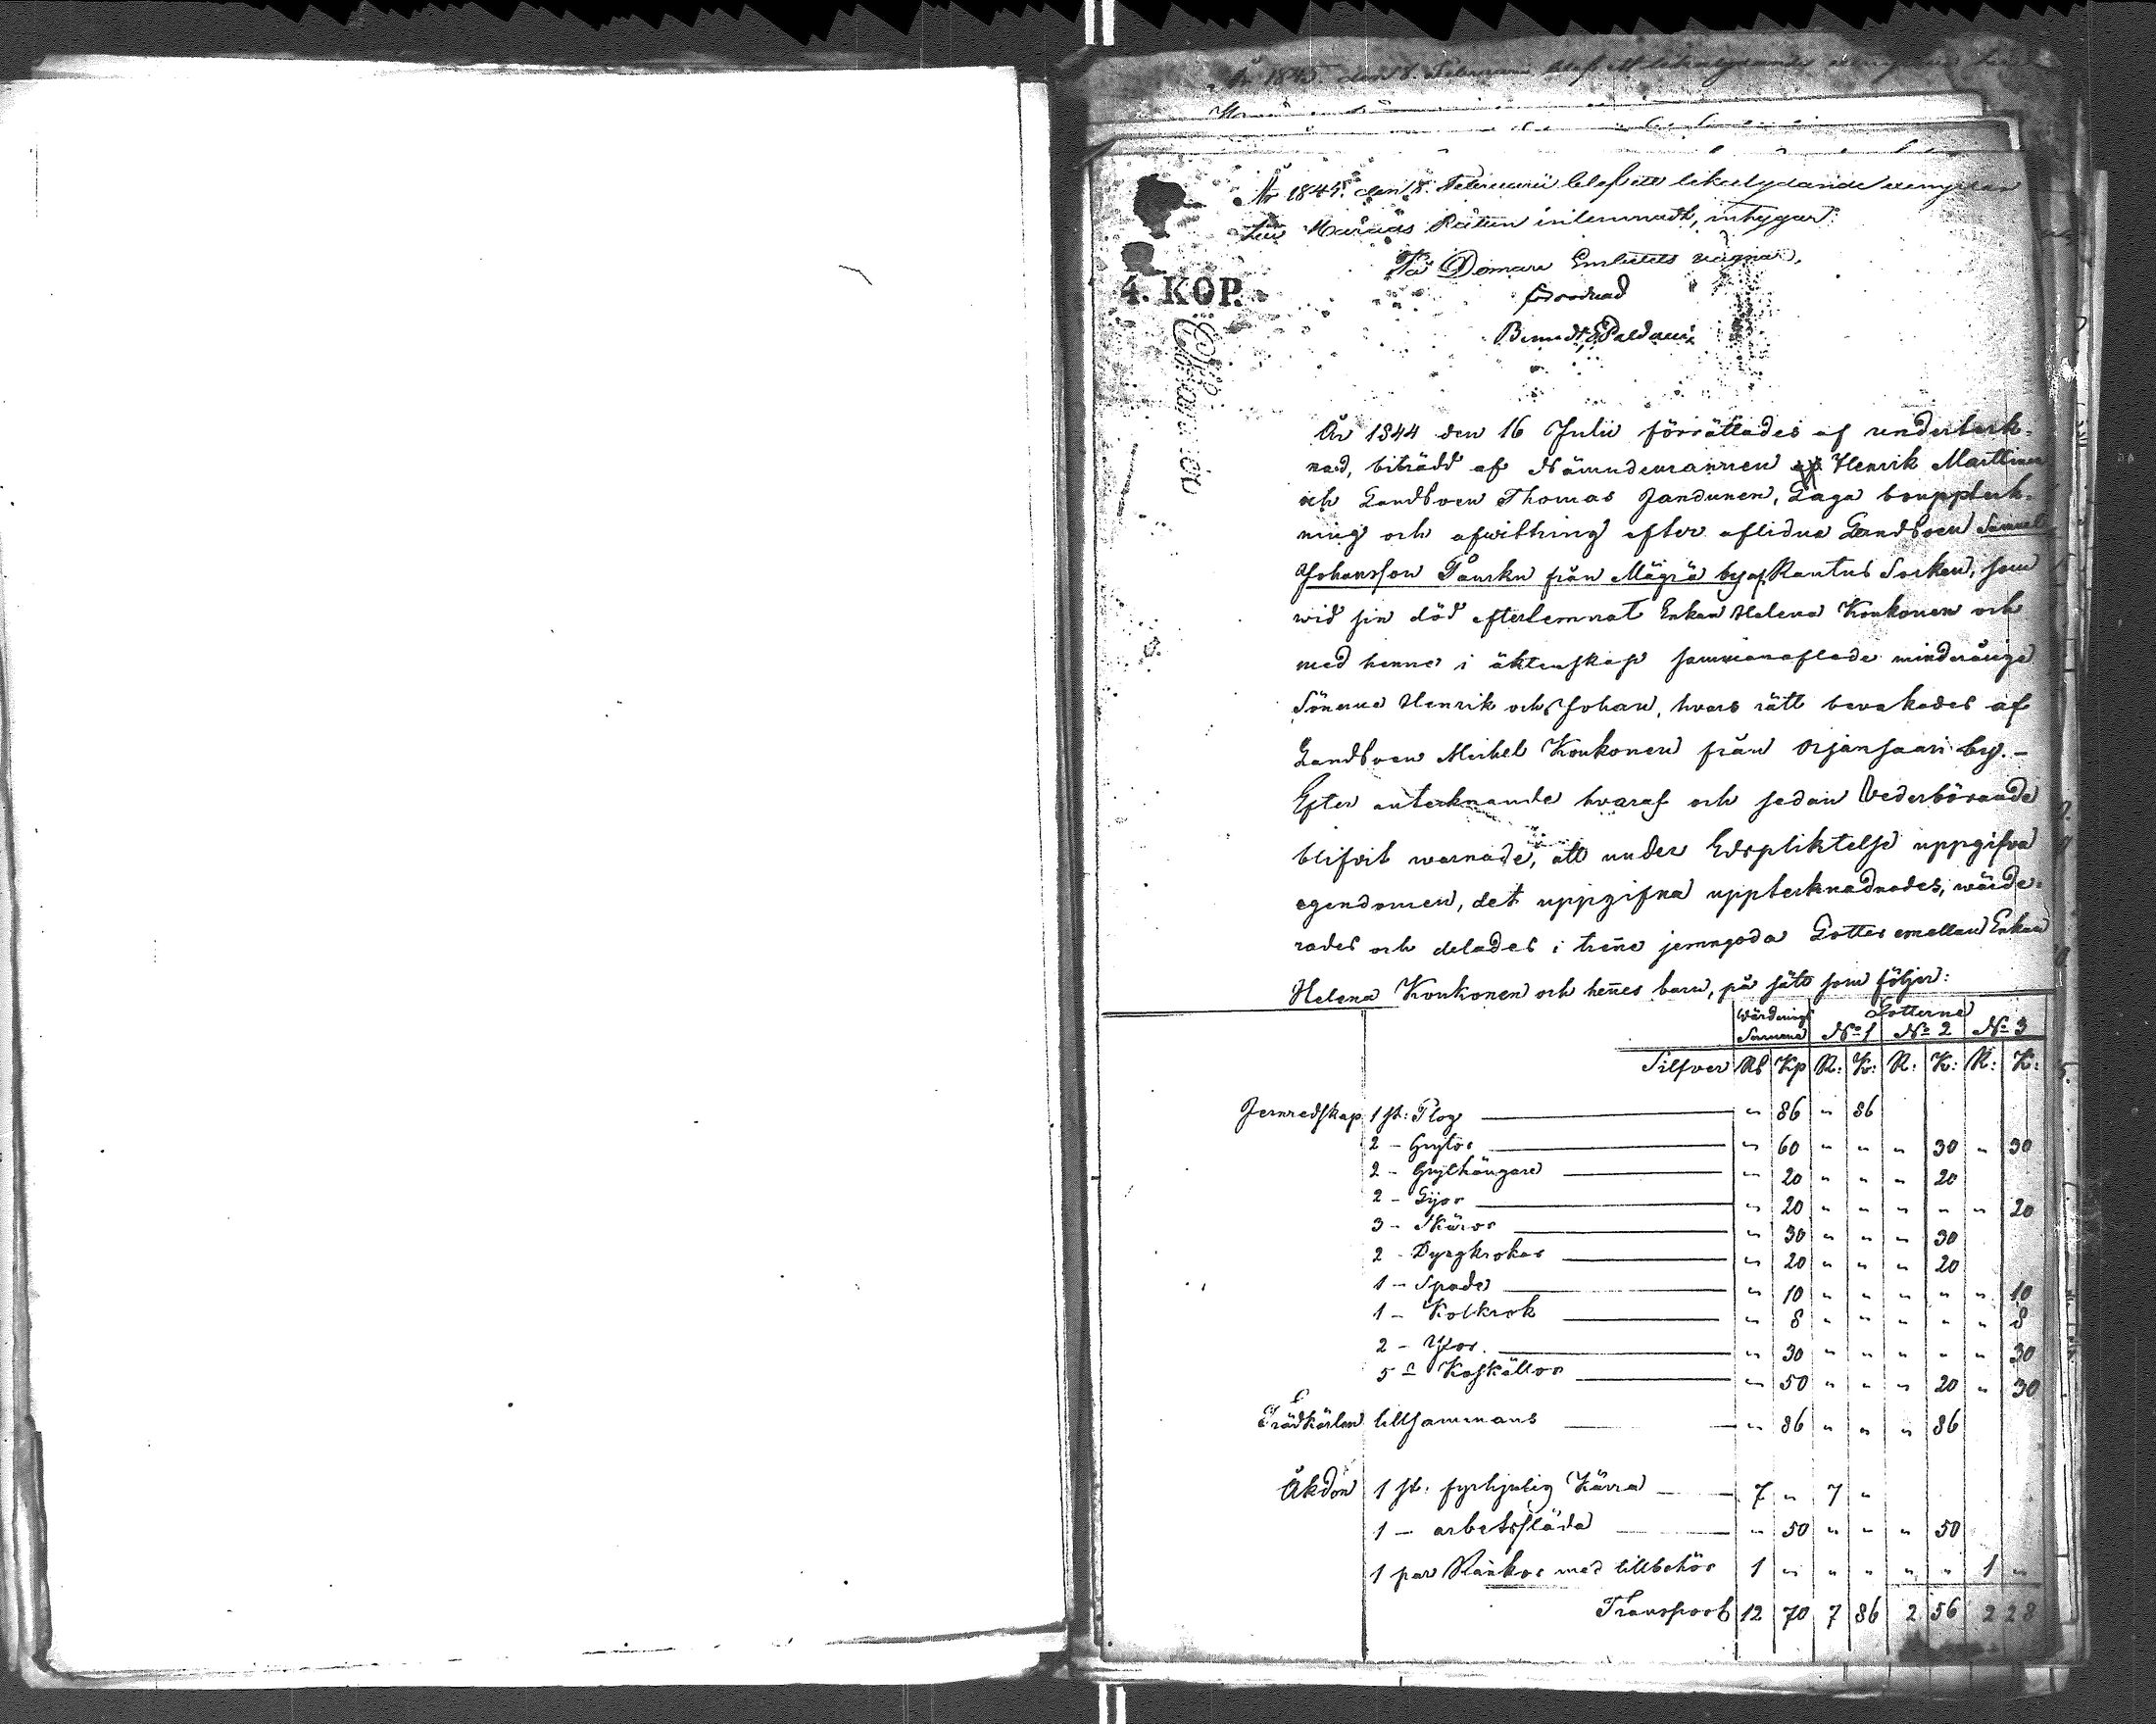 År 1845. den 8. Februarii blef ett likalydande exemplar
År 1845. den 8. Februarii blef ett likalydande exemplar
hos Härads Rätten inlemnadt, intygar:
På Domare Embetets vägnar,
förordnad
4. KOP.
År 1844 den 16 Julii förrättades af underteck-
nad, biträdd af Nämndemannen Henrik Marttinen
och Landboen Thomas Jandunen, Laga bouppteck-
ning och afwittring efter aflidne Landboen Samuel
Johansson Paurku från Mägrä by af Rautus Socken, som
wid sin död efterlemnat Enkan Helena Konkonen och
med henne i äktenskap sammanaflade minderårige
Sönerne Henrik och Johan, hvars rätt bevakades af
Landboen Michel Konkonen från Orjansaari by. -
Efter antecknande hvaraf och sedan Vederbörande
blifvit warnade, att under Edspliktelse uppgifva
egendomen, det uppgifna upptecknadnades, wärde-
rades och delades i trenne jemngoda Lotter emellan Enkan
Helena Konkonen och hennes barn, på sätt som följer:
Wärderings Summa Lotterne
No 1 No 2 No 3
Silfver Rb Kp R: K: R: K: R: K:
Jernredskap 1 st: Plog " 86 " 86
2 - Grytor " 60 " " " 30 " 30
2 - Grythängare " 20 " " " 20
2 - Lijor " 20 " " " " " 20
3 - Skäror " 30 " " " 30
2 - Dyngkrokar " 20 " " " 20
1 - Spade " 10 " " " " " 10
1 - Kolkrok " 8 " " " " " 8
2 - Yxor " 30 " " " " " 30
5 - Koskällor " 50 " " " 20 " 30
Trädkärlen tillsammans " 86 " " " 86
Åkdon 1 st. fyrhjulig Kärra 7 " 7 "
1 - arbetssläda " 50 " " " 50
1 par Rankor med tillbehör 1 " " " " " 1 "
Transport 12 70 7 86 2 56 2 28